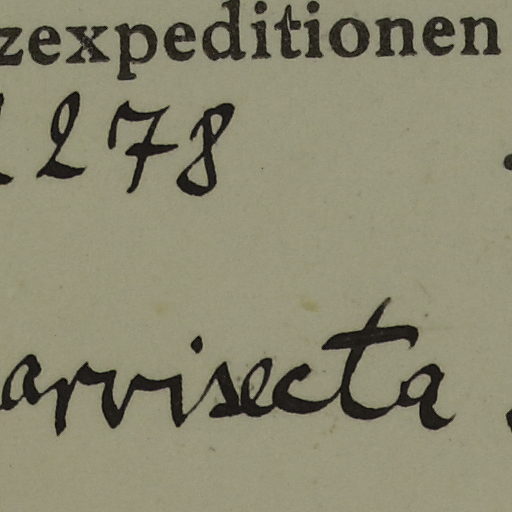 zexpeditionen
278
arvisecta